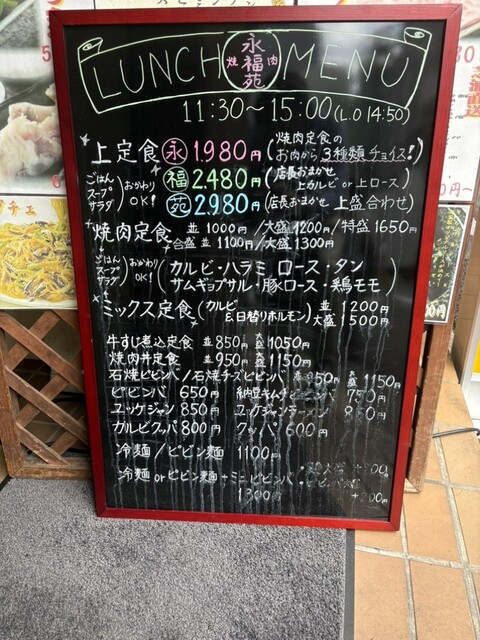 LUNCH 焼肉 永福苑 MENU
11:30~15:00(L.O 14:50)
上定食 永 1.980円 (焼肉定食のお肉から3種類チョイス!)
ごはん スープ サラダ おかわりOK!
福 2.480円 (店長おまかせ 上カルビ or 上ロース)
苑 2.980円 (店長おまかせ 上盛合わせ)
焼肉定食 並 1000円 /大盛 1200円 /特盛 1650円
合盛 並 1100円/大盛 1300円
ごはん スープ サラダ おかわりOK!
(カルビ・ハラミ ロース・タン
サムギョプサル・豚ロース・鶏モモ)
ミックス定食 (カルビ &日替りホルモン) 並 1200円 大盛 1500円
牛すじ煮込定食 並 850円 大盛 1050円
焼肉丼定食 並 950円 大盛 1150円
石焼ビビンバ/石焼チーズビビンバ 50円 大盛 1150円
ビビンバ 650円 納豆キムチビビンバ 750円
ユッケジャン 850円 ユッケジャンラーメン
カルビクッパ 800円 クッパ 600円
冷麺/ビビン麺 1100円
冷麺 or ビビン麺 + ミニビビンバ 1300円
+200円